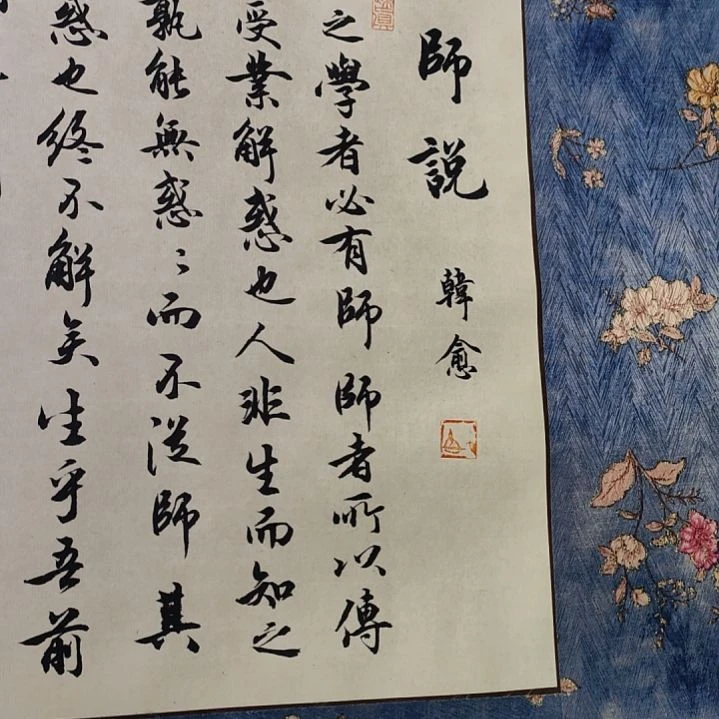 師說 韓愈
之學者必有師師者所以傳
受業解惑也人非生而知之
孰能無惑〻而不從師其
惑也終不解矣生乎吾前